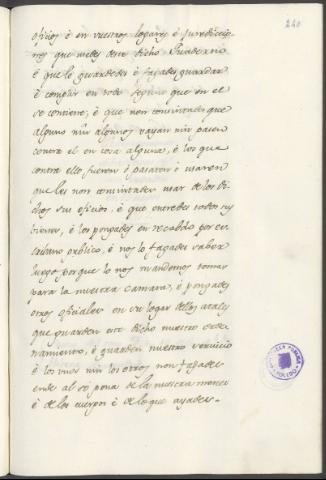 240
oficios è en vuestros logares è jurediccio
nes que vedes deste dicho Quaderno
è que lo guardedes è fagades guardar
è complir en todo segund que en el
se contiene; è que non consintades que
alguno nin algunos vayan nin pasen
contra el en cosa alguna, è los que
contra ello fueren è pasaren è usaren
que les non consintades usar de los di
chos sus oficios, è que entredes todos sus
bienes, è los pongades en recabdo por es
cribano publico, è nos lo fagades saber
luego porque lo nos mandemos tomar
para la nuestra camara; è pongades
otros oficiales en su logar dellos atales
que guarden este dicho nuestro orde
namiento, è guarden nuestro servicio
è los unos nin los otros non fagades
ende al só pena de la nuestra merced
è de los cuerpos è de lo que ayades =